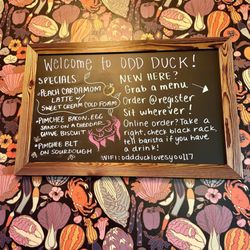 Welcome to ODD DUCK!
SPECIALS
• PEACH CARDAMOM
LATTE
w/ SWEET CREAM COLD FOAM
• PIMCHEE BACON, EGG
ON A CHEDDAR
CHIVE BISCUIT
• PIMCHEE BLT
ON SOURDOUGH
NEW HERE?
Grab a menu
Order @register
Sit wherever!
Online order? Take a
right, check black rack,
tell barista if you have
a drink!
WIFI: oddducklovesyou117